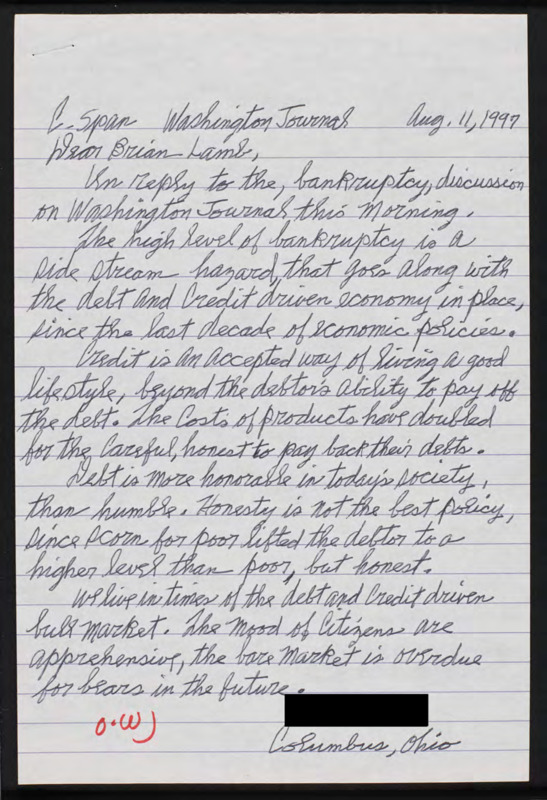 C-Span Washington Journal Aug. 11, 1997
Dear Brian Lamb,
In reply to the, bankruptcy, discussion
on Washington Journal this Morning.
The high level of bankruptcy is a
side stream hazard, that goes along with
the debt and Credit driven economy in place,
since the last decade of economic policies.
Credit is an accepted way of living a good
lifestyle, beyond the debtors ability to pay off
the debt. The Costs of products have doubled
for the, Careful, honest to pay back their debts.
Debt is more honorable in today's society,
than humble. Honesty is not the best policy,
since scorn for poor lifted the debtor to a
higher level than poor, but honest.
We live in times of the debt and Credit driven
bull market. The mood of Citizens are
apprehensive, the bare market is overdue
for bears in the future.
O.WJ
Columbus, Ohio